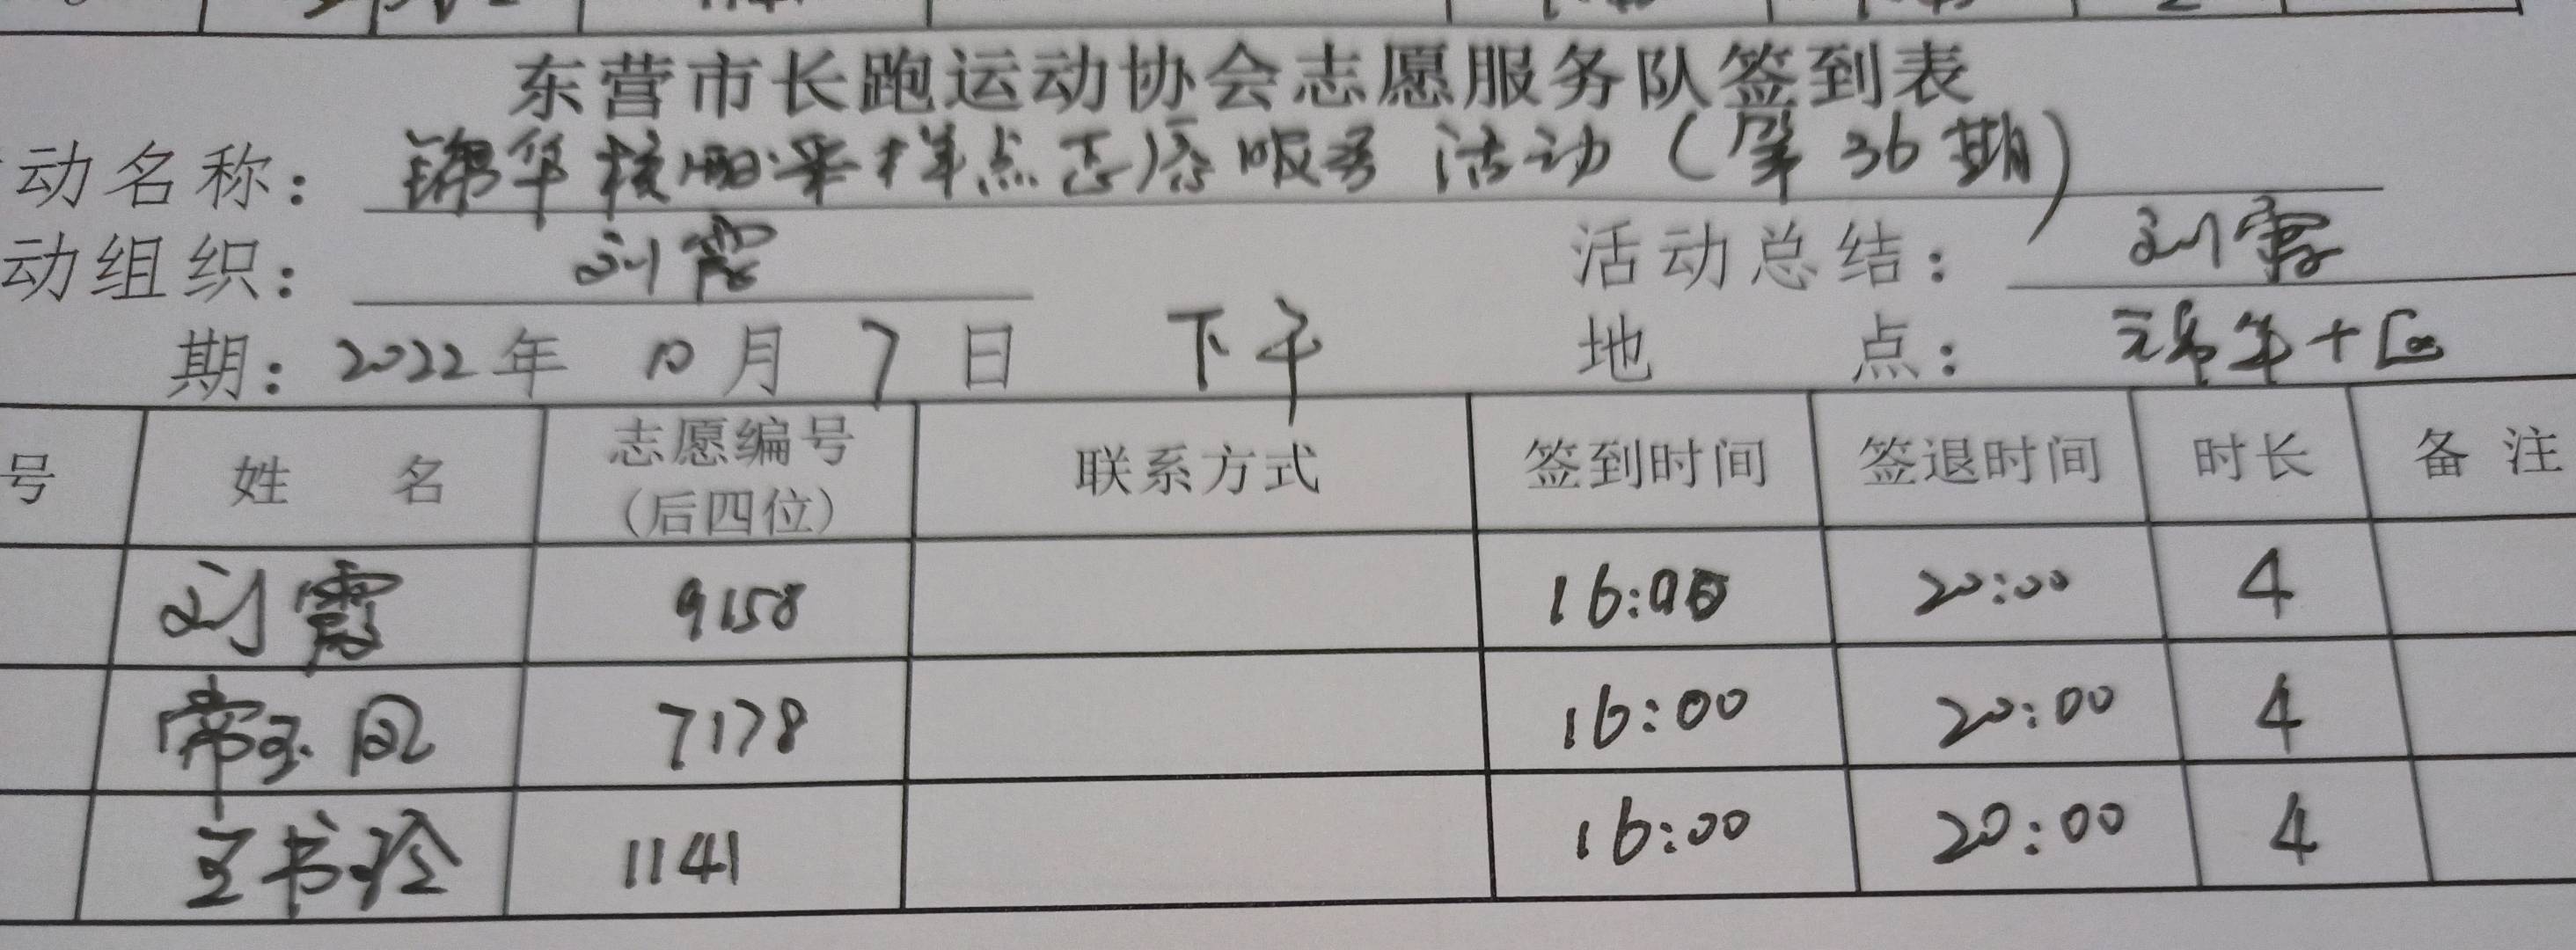 东营市长跑运动协会志愿服务队签到表
动名称：锦华核酸采样点志愿服务活动（第36期）
动组织：刘霞 活动总结：刘霞
期：2022年10月7日 下午 地点：
号 姓名 志愿编号（后四位） 联系方式 签到时间 签退时间 时长 备注
刘霞 9158 16:00 20:00 4
常玉凤 7178 16:00 20:00 4
王书玲 1141 16:00 20:00 4